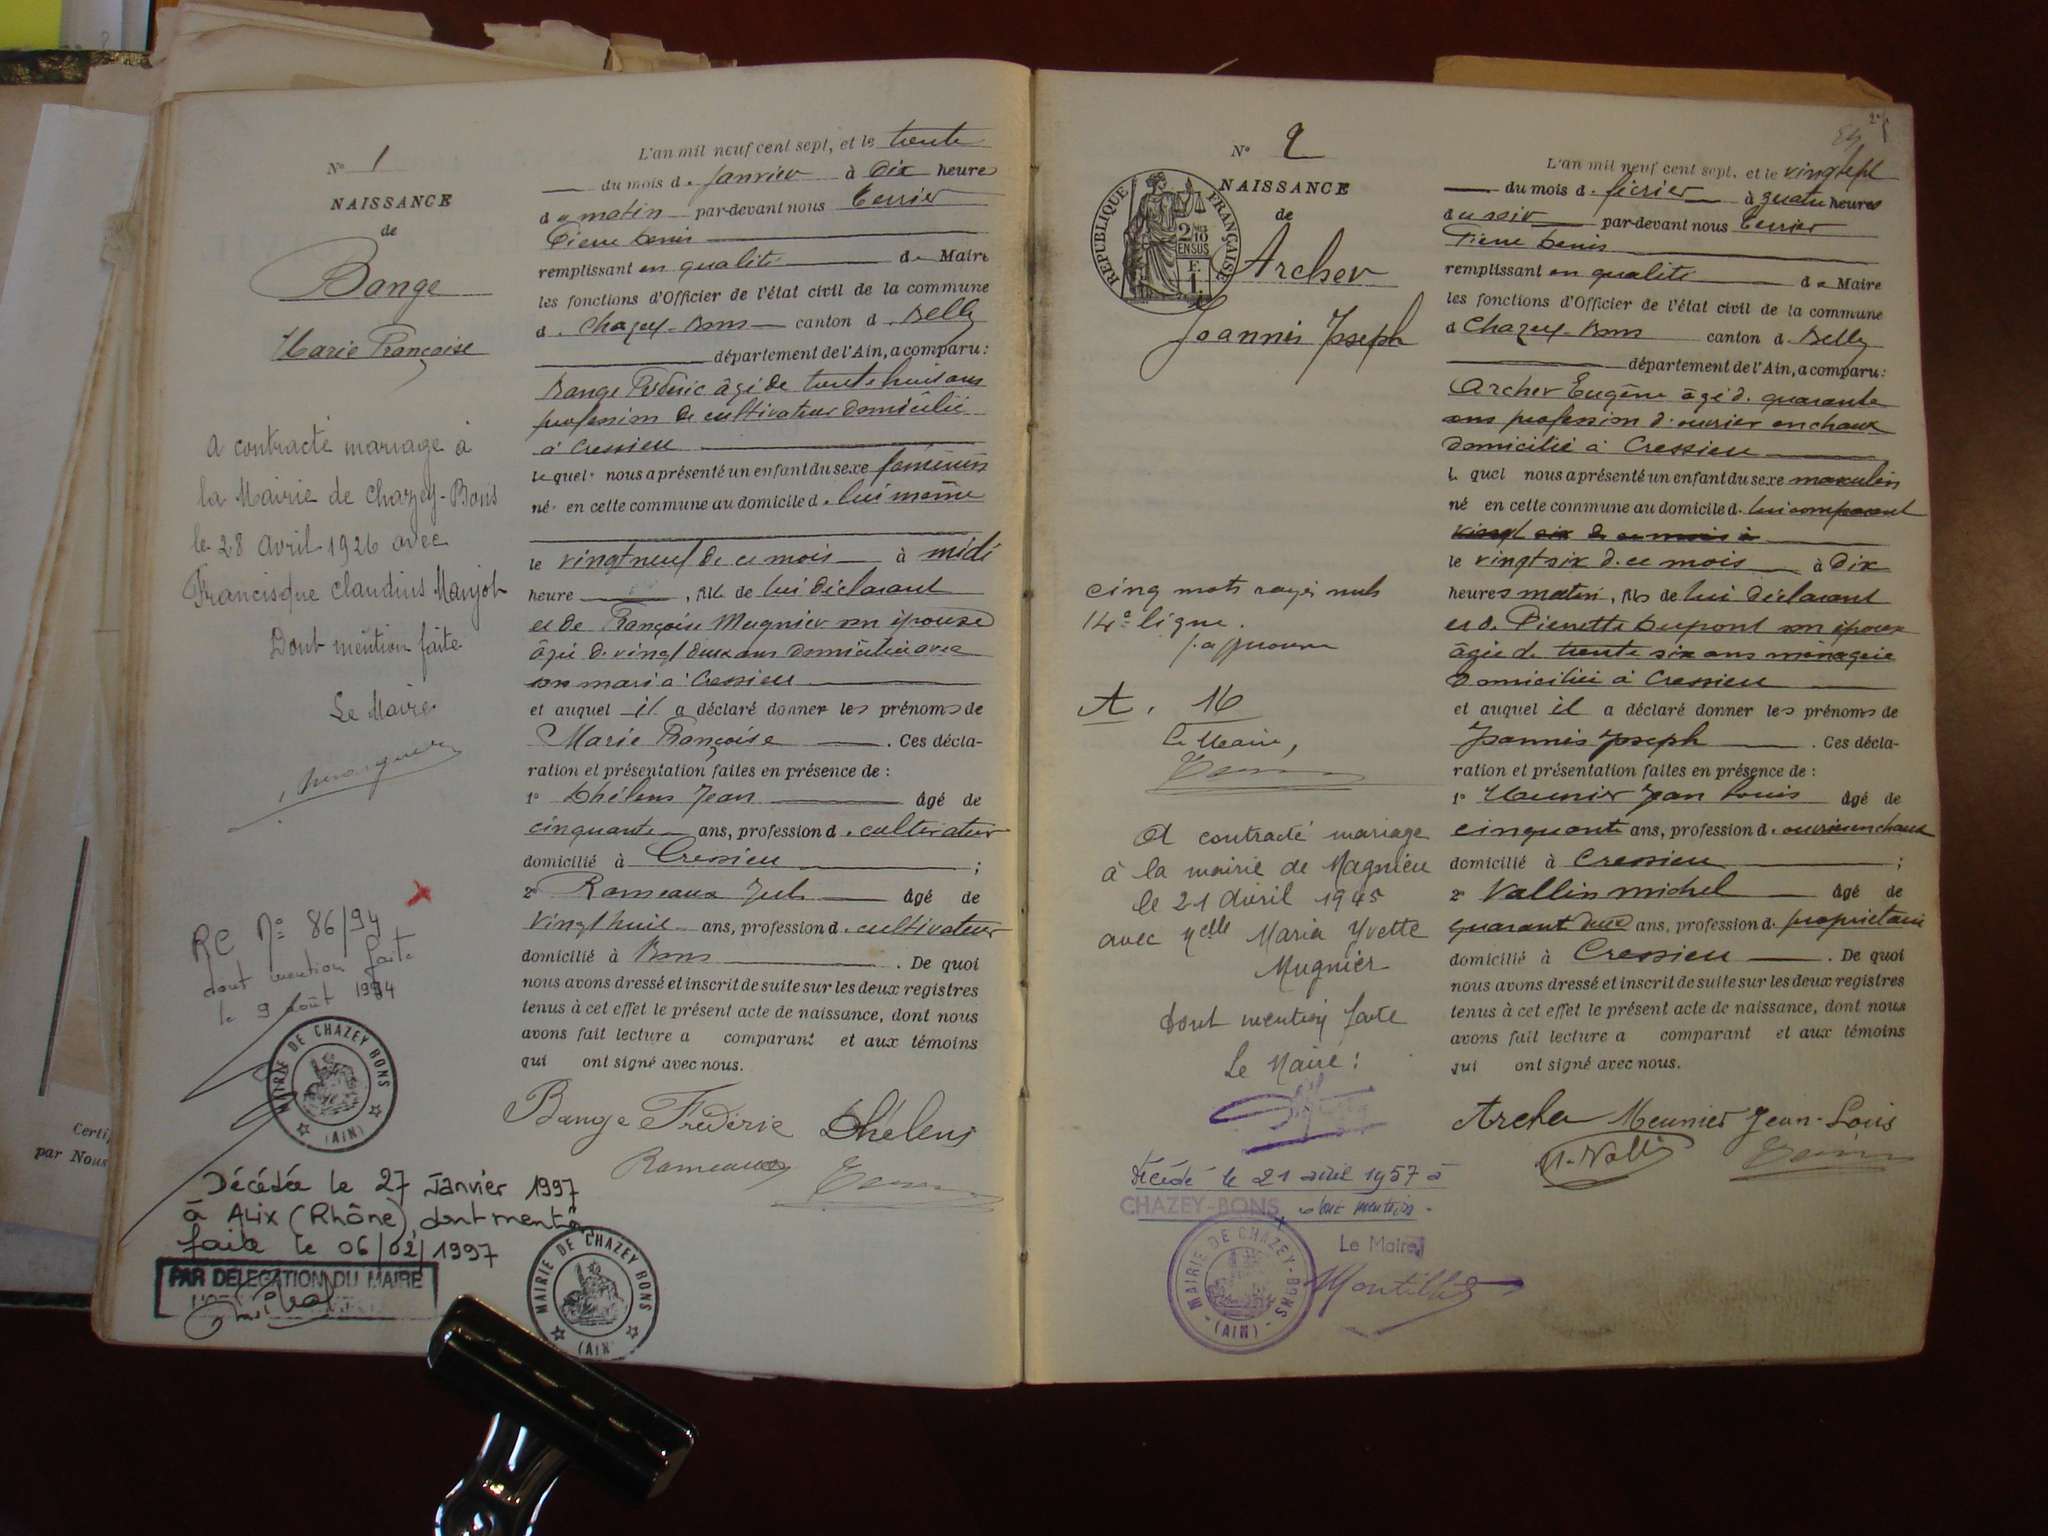 N° 1
NAISSANCE
de
Bange
Marie Françoise
a contracté mariage à
la Mairie de Chazey-Bons
le 28 avril 1926 avec
Francisque Claudius Manjot
Dont mention faite
Le Maire
RC N° 86/94
dont mention faite
le 9 août 1994
MAIRIE DE CHAZEY BONS
(AIN)
Décédée le 27 Janvier 1997
à ALIX (Rhône), dont mention
faite le 06/02/1997
PAR DELEGATION DU MAIRE
L'an mil neuf cent sept, et le trente
du mois de janvier à Dix heures
du matin par-devant nous Terrier
Pierre Denis
remplissant en qualité de Maire
les fonctions d'Officier de l'état civil de la commune
d. Chazey-Bons canton d. Belley
département de l'Ain, a comparu:
Bange Frédéric âgé de trente huit ans
profession de cultivateur domicilié
à Cressieu
lequel nous a présenté un enfant du sexe féminin
né en cette commune au domicile d. lui même
le vingt neuf de ce mois à midi
heure , fille de lui déclarant
et de Françoise Mugnier son épouse
âgée de vingt deux ans domiciliée avec
son mari à Cressieu
et auquel il a déclaré donner les prénoms de
Marie Françoise . Ces décla-
ration et présentation faites en présence de :
1° Thélens Jean âgé de
cinquante ans, profession d. cultivateur
domicilié à Cressieu ;
2° Rameaux Jules âgé de
vingt huit ans, profession d. cultivateur
domicilié à Bons . De quoi
nous avons dressé et inscrit de suite sur les deux registres
tenus à cet effet le présent acte de naissance, dont nous
avons fait lecture a comparant et aux témoins
qui ont signé avec nous.
Bange Frédéric Thélens
Rameaux
MAIRIE DE CHAZEY BONS
(AIN)
N° 2
NAISSANCE
de
REPUBLIQUE FRANÇAISE
Archer
Joannès Joseph
cinq mots rayés nuls
14e ligne.
A. 16
Le Maire,
A contracté mariage
à la mairie de Magnieu
le 21 avril 1945
avec Melle Maria Yvette
Mugnier
dont mention faite
Le Maire :
Décédé le 21 avril 1957 à
CHAZEY-BONS dont mention.
Le Maire
MAIRIE DE CHAZEY-BONS
(AIN)
L'an mil neuf cent sept, et le vingt sept
du mois d. février à quatre heures
du soir par-devant nous Terrier
Pierre Denis
remplissant en qualité de Maire
les fonctions d'Officier de l'état civil de la commune
d Chazey-Bons canton d. Belley
département de l'Ain, a comparu:
Archer Eugène âgé d. quarante
ans profession d. ouvrier en chaux
domicilié à Cressieu
le quel nous a présenté un enfant du sexe masculin
né en cette commune au domicile d. lui comparant
vingt six de ce mois à
le vingt six d. ce mois à Dix
heures matin, fils de lui déclarant
et d. Pierrette Dupont son épouse
âgée de trente six ans ménagère
Domiciliée à Cressieu
et auquel il a déclaré donner les prénoms de
Joannès Joseph . Ces décla-
ration et présentation faites en présence de :
1° Meunier Jean Louis âgé de
cinquante ans, profession d. ouvrier en chaux
domicilié à Cressieu ;
2° Vallin Michel âgé de
quarante deux ans, profession d. propriétaire
domicilié à Cressieu . De quoi
nous avons dressé et inscrit de suite sur les deux registres
tenus à cet effet le présent acte de naissance, dont nous
avons fait lecture a comparant et aux témoins
qui ont signé avec nous.
Archer Meunier Jean-Louis